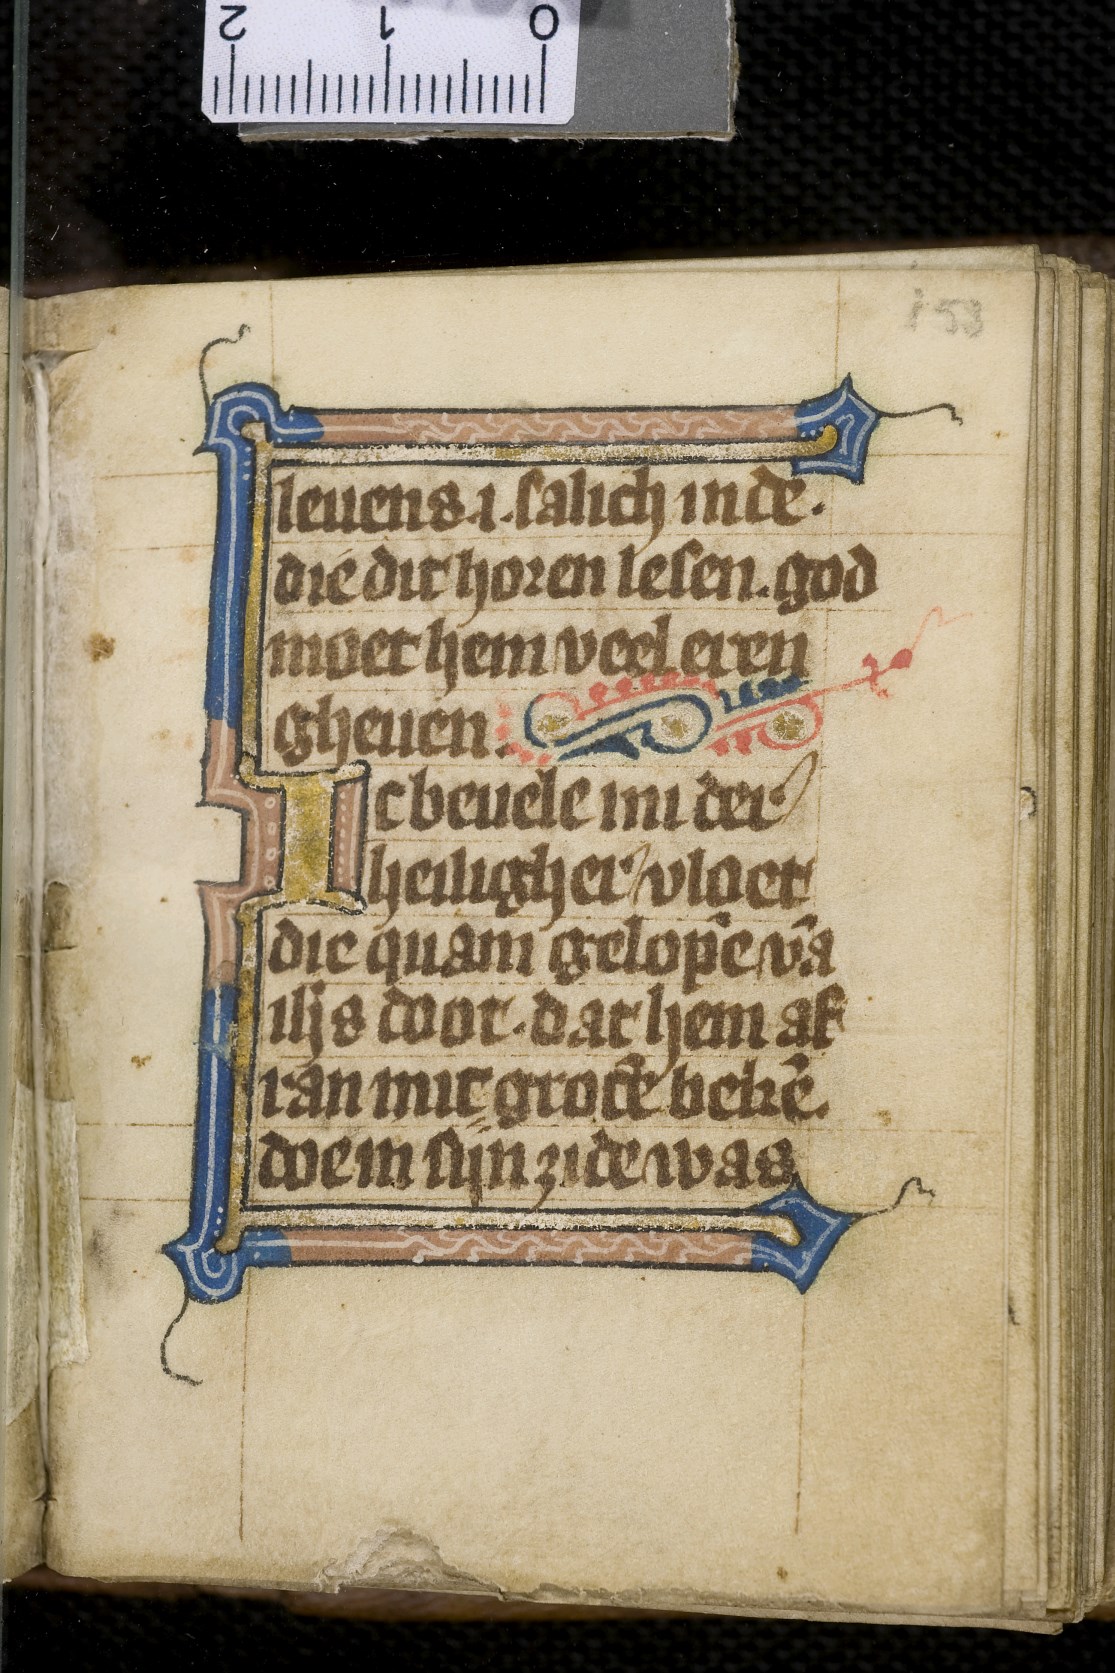 2 1 0
i 53
leuens .i. salich inde.
die dit horen lesen. god
moet hem veel eren
gheuen.
Ic beuele mi der
heiligher vloet
die quam gelopē vā
ih̄s doot. dat hem af
ran mit grotē bekē.
doe in sijn zide was